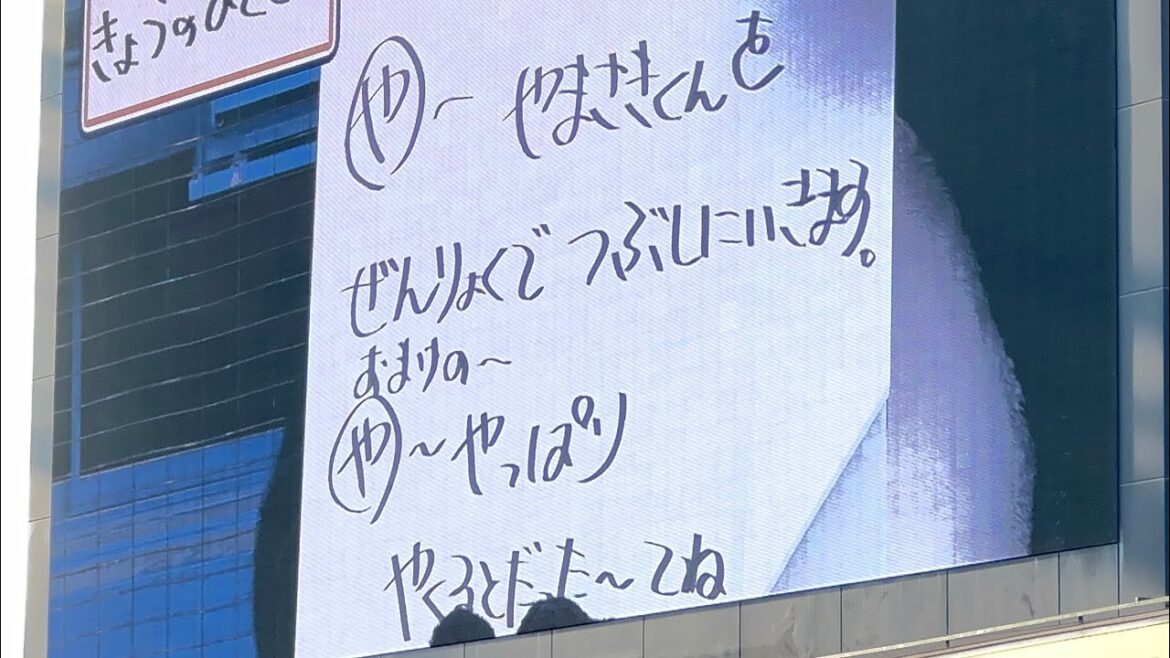 きょうのひとこ
や〜 やまさきくんを
ぜんりょくで つぶしにいきます。
おまけの〜
や〜やっぱり
やくるとだった〜てね